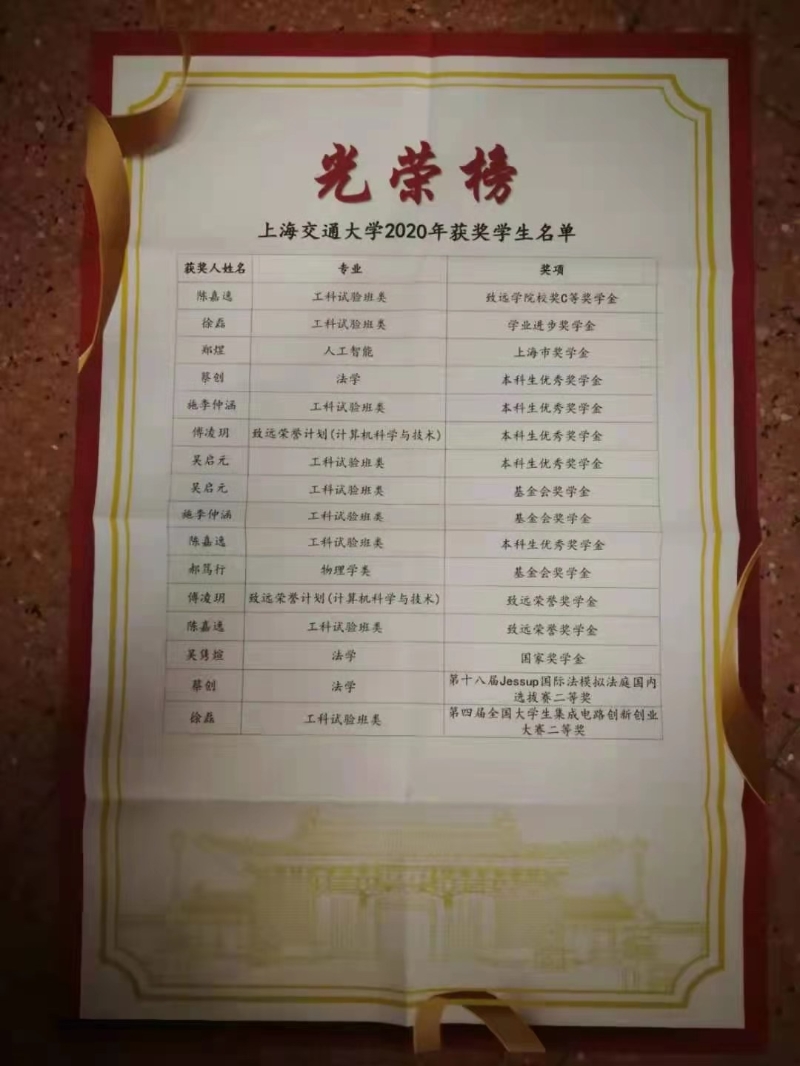 光荣榜
上海交通大学2020年获奖学生名单
获奖人姓名 专业 奖项
陈嘉逸 工科试验班类 致远学院校奖C等奖学金
徐磊 工科试验班类 学业进步奖学金
郑煜 人工智能 上海市奖学金
蔡创 法学 本科生优秀奖学金
施李仲涵 工科试验班类 本科生优秀奖学金
傅凌玥 致远荣誉计划(计算机科学与技术) 本科生优秀奖学金
吴启元 工科试验班类 本科生优秀奖学金
吴启元 工科试验班类 基金会奖学金
施李仲涵 工科试验班类 基金会奖学金
陈嘉逸 工科试验班类 本科生优秀奖学金
郝笃行 物理学类 基金会奖学金
傅凌玥 致远荣誉计划(计算机科学与技术) 致远荣誉奖学金
陈嘉逸 工科试验班类 致远荣誉奖学金
吴隽煊 法学 国家奖学金
蔡创 法学 第十八届Jessup国际法模拟法庭国内
选拔赛二等奖
徐磊 工科试验班类 第四届全国大学生集成电路创新创业
大赛二等奖